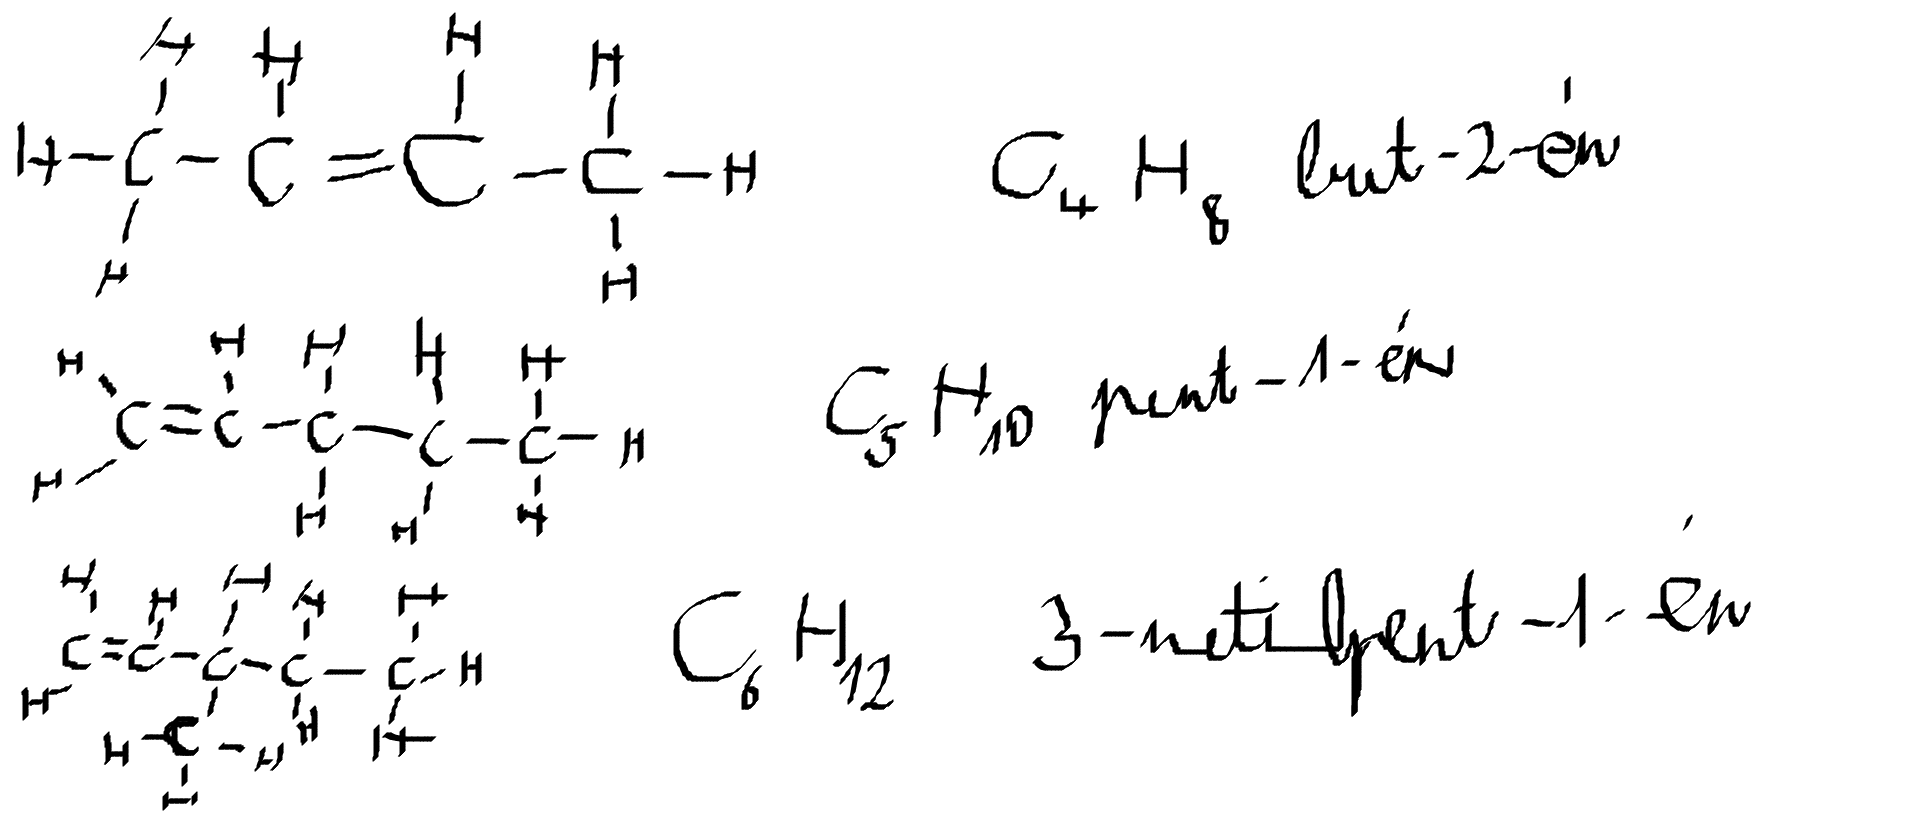 H H H H
H - C - C = C - C - H
H H
C₄H₈ but-2-én
H H H H H
C = C - C - C - C - H
H H H H
C₅H₁₀ pent-1-én
H H H H H
C = C - C - C - C - H
H H H
H - C - H
H
C₆H₁₂ 3-metilpent-1-én